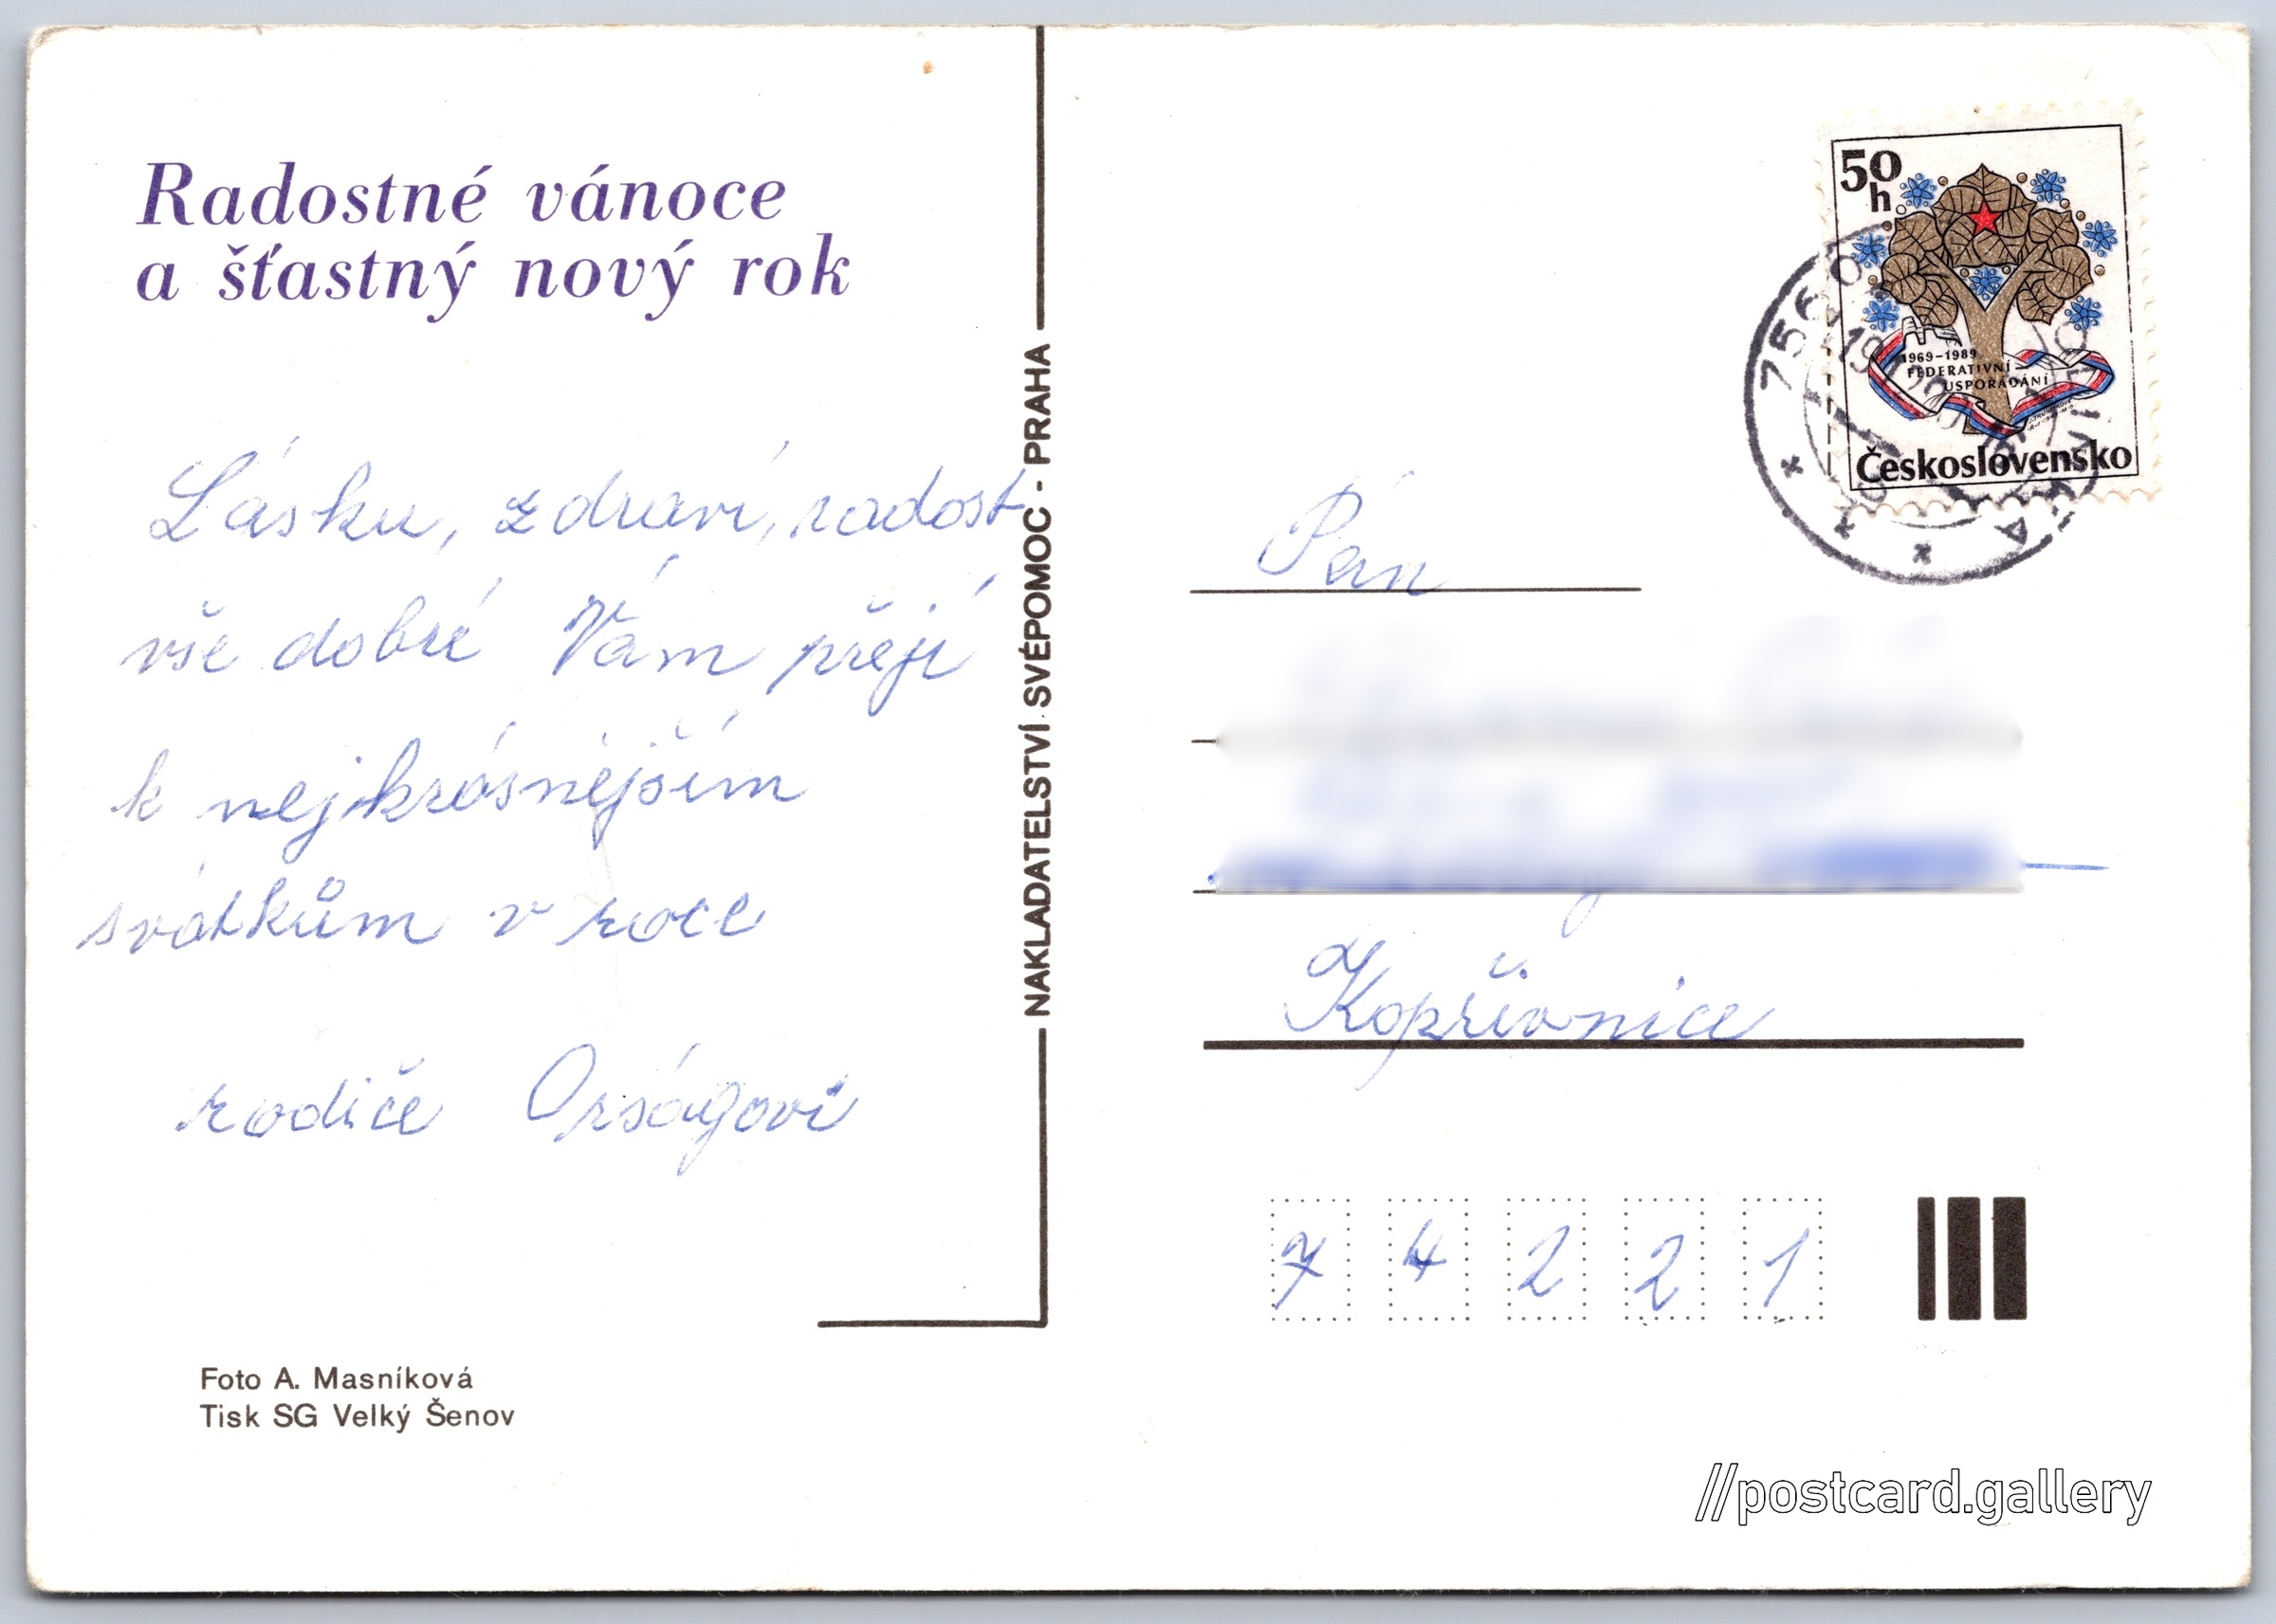 Radostné vánoce
a šťastný nový rok
Lásku, zdraví, radost
vše dobré Vám přejí
k nejkrásnějším
svátkům v roce
rodiče Orságovi
Foto A. Masníková
Tisk SG Velký Šenov
NAKLADATELSTVÍ SVÉPOMOC - PRAHA
50
h
1969-1989
FEDERATIVNÍ
USPOŘÁDÁNÍ
Československo
756 0
Pán
Kopřivnice
7 4 2 2 1
//postcard.gallery